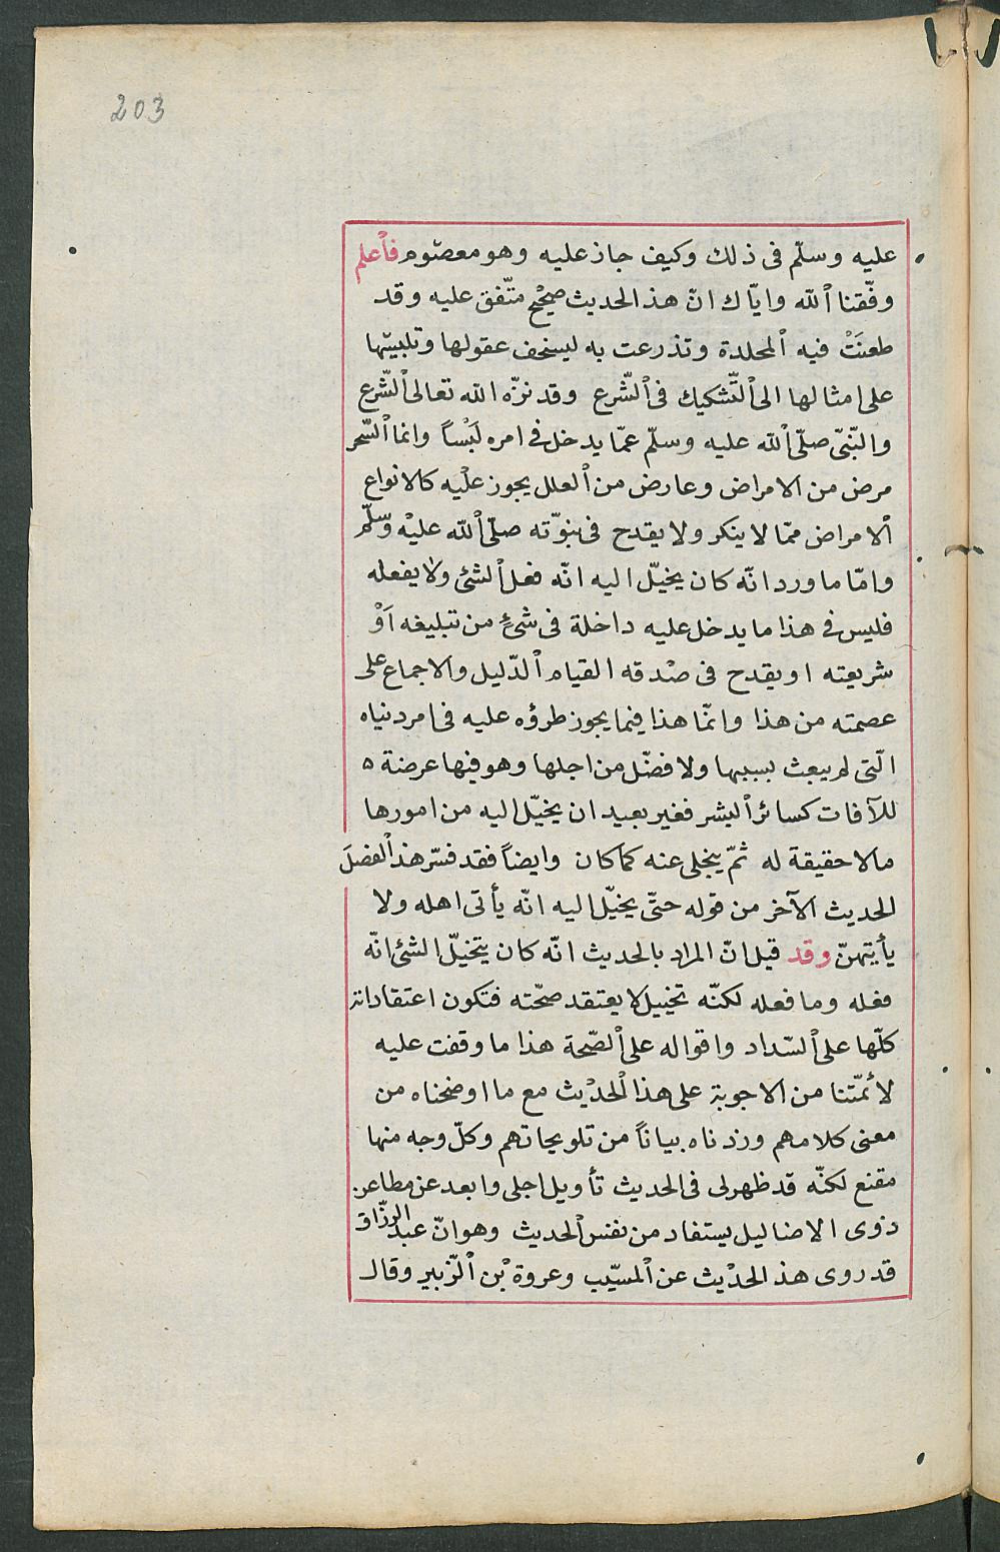 203
عليه وسلّم فى ذلك وكيف جاز عليه وهو معصوم فأعلم
وفّقنا ألله وايّاك انّ هذ الحديث صحيح متّفق عليه وقد
طعنَتْ فيه ألمحلدة وتذرعت به ليسخف عقولها وتلبيتها
على امثالها الى ألتّشكيك فى ألشّرع وقد نزّه الله تعالى ألشّرع
والنّبىّ صلّى ألله عليه وسلّم عمّا يدخل فى امره لَبْساً وانما ألسّحر
مرض من الامراض وعارض من ألعلل يجوز علْيه كالانواع
ألامراض ممّا لا ينكر ولا يقدح فى نبوّته صلّى ألله عليْه وسلّم
وامّا ما ورد انّه كان يخيّل اليه انّه فعل ألشئ ولا يفعله
فليس فى هذا ما يدخل عليه داخلة فى شئٍ من تبليغه اَوْ
شريعته او يقدح فى صْدقه القيام ألدّليل والاجماع على
عصمته من هذا وانّما هذا فيما يجوز طرؤه عليه فى امر دنياه
الّتى لم يبعث بسببها ولا فضّل من اجلها وهو فيها عرضة ه
للآفات كسائر ألبشر فغير بعيد ان يخيّل اليه من امورها
مالا حقيقة له ثمّ ينجلى عنه كما كان وايضاً فقد فسّر هذ ألفصلَ
الحديث الآخر من قوله حتّى يخيّل اليه انّه يأتى اهله ولا
يأتيهنّ وقد قيل انّ المراد بالحديث انّه كان يتخيّل الشئ انّه
فعله وما فعله لكنّه تخييل لا يعتقد صحّته فتكون اعتقاداته
كلّها على ألسّداد واقواله على ألصّحة هذا ما وقفت عليه
لأئمّتنا من الاجوبة على هذا ألحديْث مع ما اوضحناه من
معنى كلامهم وزدناه بياناً من تلويحاتهم وكلّ وجه منها
مقنع لكنّه قد ظهر لى فى الحديث تأويل اجلى وابعد عن مطاعن
ذوى الاضاليل يستفاد من نفس ألحديث وهو انّ عبد الرزّاق
قد روى هذ الحديْث عن ألمسيّب وعروة بْن ألزّبير وقال